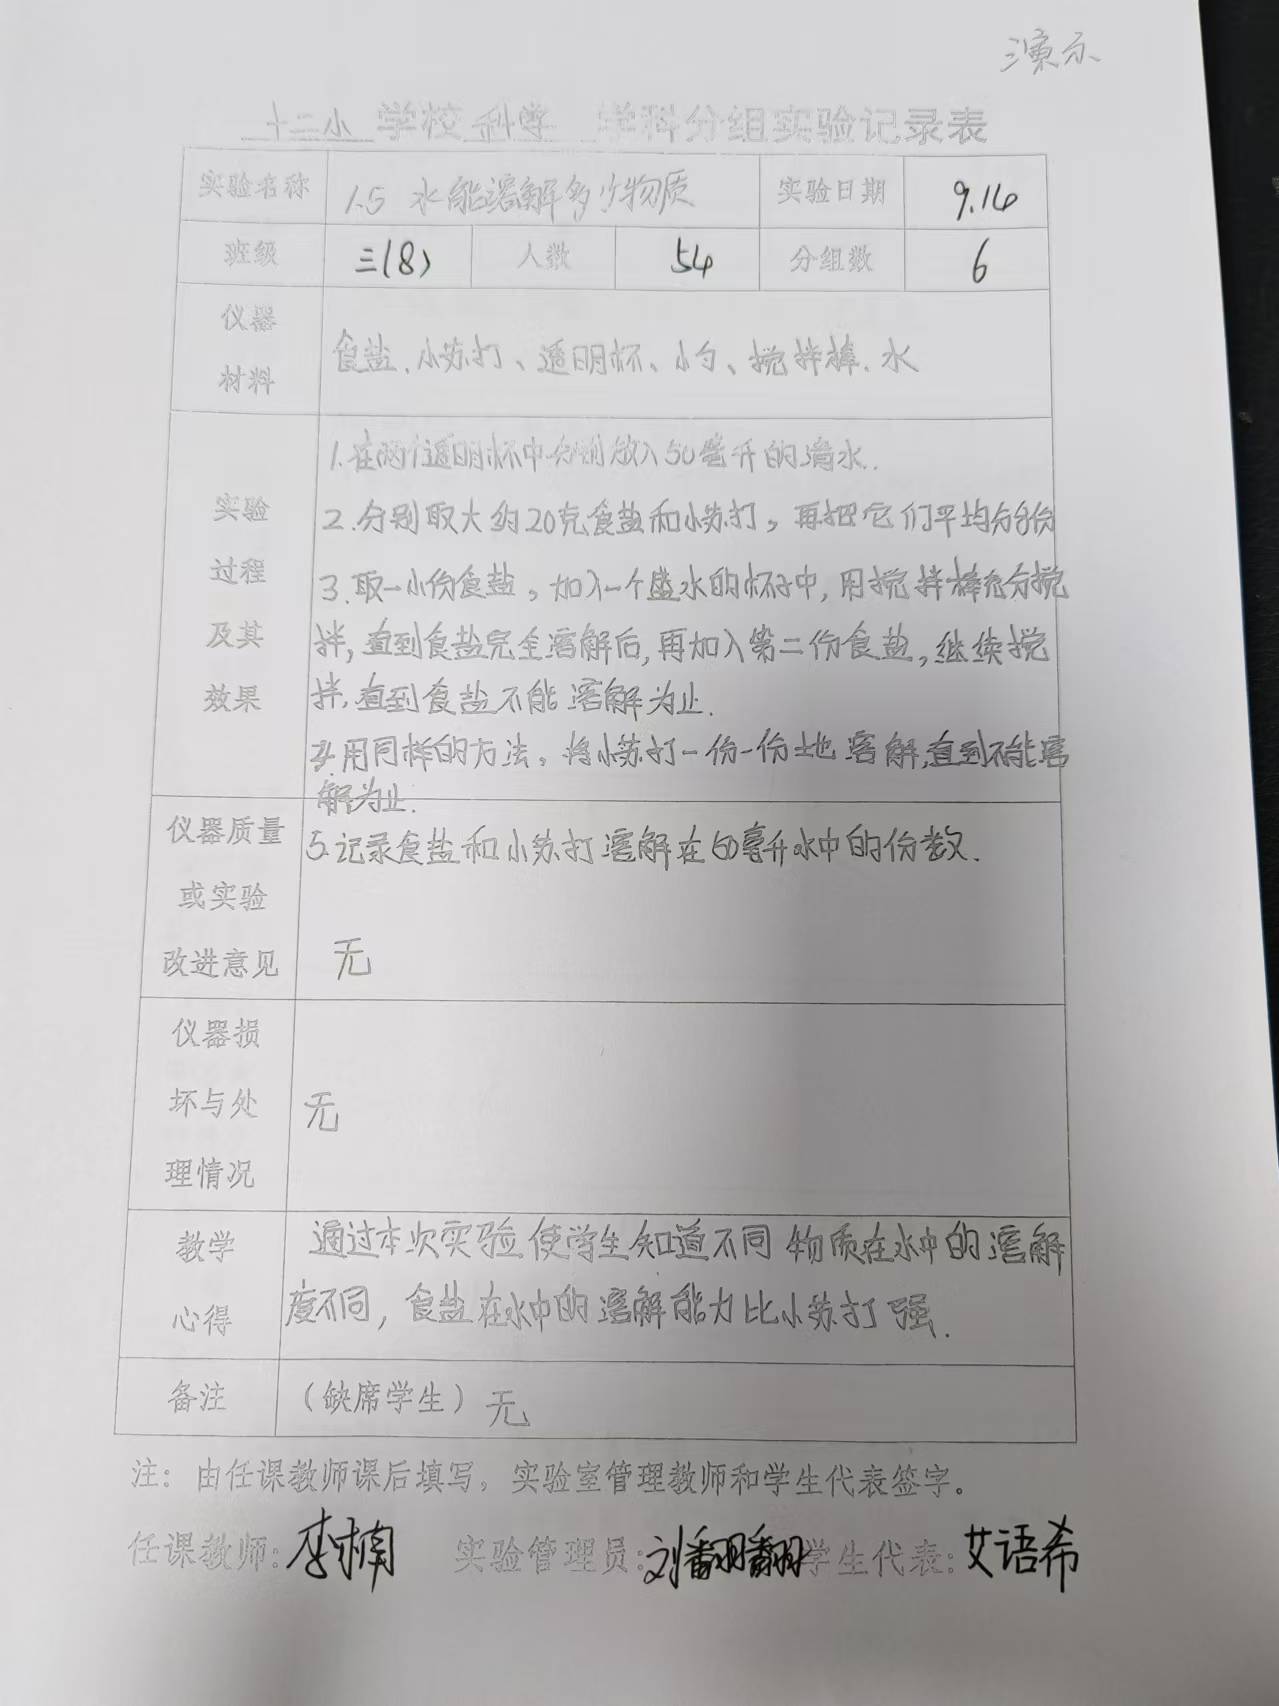 演示
十二小 学校 科学 学科分组实验记录表
实验名称 1.5 水能溶解多少物质 实验日期 9.16
班级 三(8) 人数 54 分组数 6
仪器
材料
食盐、小苏打、透明杯、小勺、搅拌棒、水
实验
过程
及其
效果
1.在两个透明杯中分别放入50毫升的清水.
2.分别取大约20克食盐和小苏打,再把它们平均分
3.取一小份食盐,加入一个盛水的杯子中,用搅拌棒充分搅
拌,直到食盐完全溶解后,再加入第二份食盐,继续搅
拌,直到食盐不能溶解为止.
4.用同样的方法,将小苏打一份一份地溶解,直到不能溶
解为止.
仪器质量
或实验
改进意见
5.记录食盐和小苏打溶解在50毫升水中的份数.
无
仪器损
坏与处
理情况
无
教学
心得
通过本次实验使学生知道不同物质在水中的溶解
度不同,食盐在水中的溶解能力比小苏打强.
备注 (缺席学生) 无
注:由任课教师课后填写,实验室管理教师和学生代表签字。
任课教师:李楠 实验管理员:刘翻翻 学生代表:艾语希